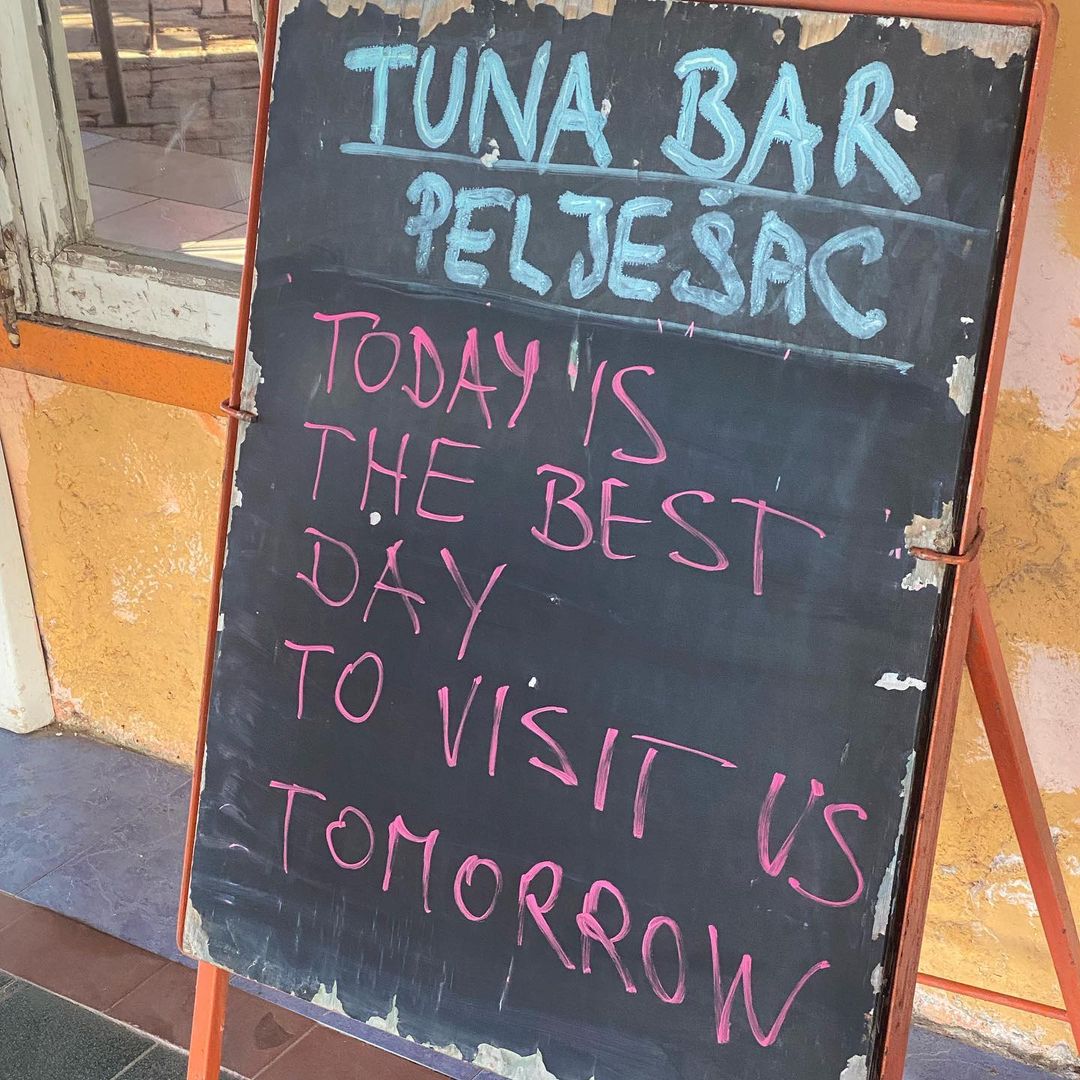 TUNA BAR
PELJEŠAC
TODAY IS
THE BEST
DAY
TO VISIT US
TOMORROW